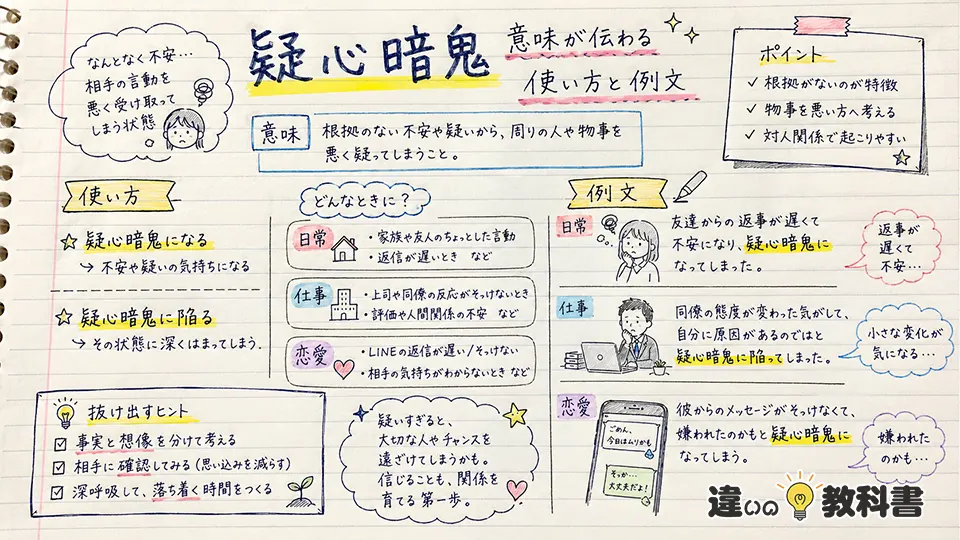 なんとなく不安…
相手の言動を
悪く受け取って
しまう状態
疑心暗鬼
意味が伝わる
使い方と例文
ポイント
✓ 根拠がないのが特徴
✓ 物事を悪い方へ考える
✓ 対人関係で起こりやすい
意味
根拠のない不安や疑いから、周りの人や物事を
悪く疑ってしまうこと。
使い方
疑心暗鬼になる
↳ 不安や疑いの気持ちになる
疑心暗鬼に陥る
↳ その状態に深くはまってしまう.
どんなときに?
日常
・家族や友人のちょっとした言動
・返信が遅いとき など
仕事
・上司や同僚の反応がそっけないとき
・評価や人間関係の不安 など
恋愛
・LINEの返信が遅い/そっけない
・相手の気持ちがわからないとき など
例文
日常
友達からの返事が遅くて
不安になり、疑心暗鬼に
なってしまった。
返事が
遅くて
不安…
仕事
同僚の態度が変わった気がして、
自分に原因があるのではと
疑心暗鬼に陥ってしまった。
小さな変化が
気になる…
恋愛
ごめん、
今日はムリかも
そっか…
大丈夫だよ!
彼からのメッセージがそっけなくて、
嫌われたのかもと疑心暗鬼に
なってしまう。
嫌われた
のかも…
抜け出すヒント
☑ 事実と想像を分けて考える
☑ 相手に確認してみる(思い込みを減らす)
☑ 深呼吸して、落ち着く時間をつくる
疑いすぎると、
大切な人やチャンスを
遠ざけてしまうかも。
信じることも、関係を
育てる第一歩。
違いの教科書